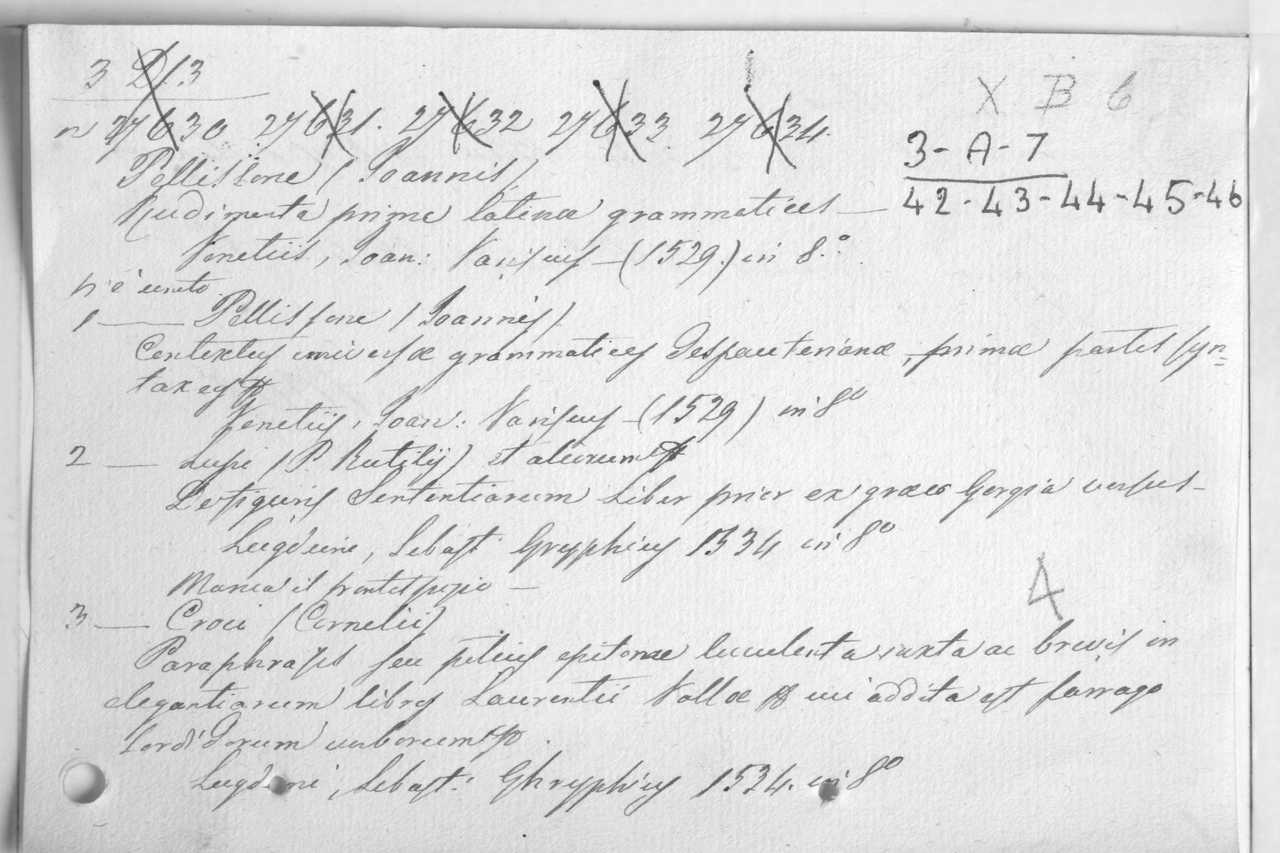 3 D 13
X B 6
n 27630 27631. 27632 27633 27634.
3-A-7
42-43-44-45-46
Pellissone (Joannis)
Rudimenta prime latinæ grammatices —
Venetiis, Joan: Variscus — (1529.) in 8.°
vi è unito
1 — Pellissone (Joannis)
Contextus universæ grammatices Despauterianæ, primæ partis syn=
taxes
Venetiis, Joan: Variscus — (1529) in 8°
2 — Lupi (P. Rutilij) et aliorum
De figuris Sententiarum Liber prior ex græco Gorgia versus —
Lugduni, Sebast. Gryphius 1534 in 8°
Manca il frontespizio —
4
3 — Croci (Cornelii)
Paraphrasis seu potius epitome luculenta iuxta ac brevis in
elegantiarum libros Laurentii Vallæ cui addita est farrago
sordidorum verborum
Lugduni, Sebast: Ghryphius 1534. in 8°